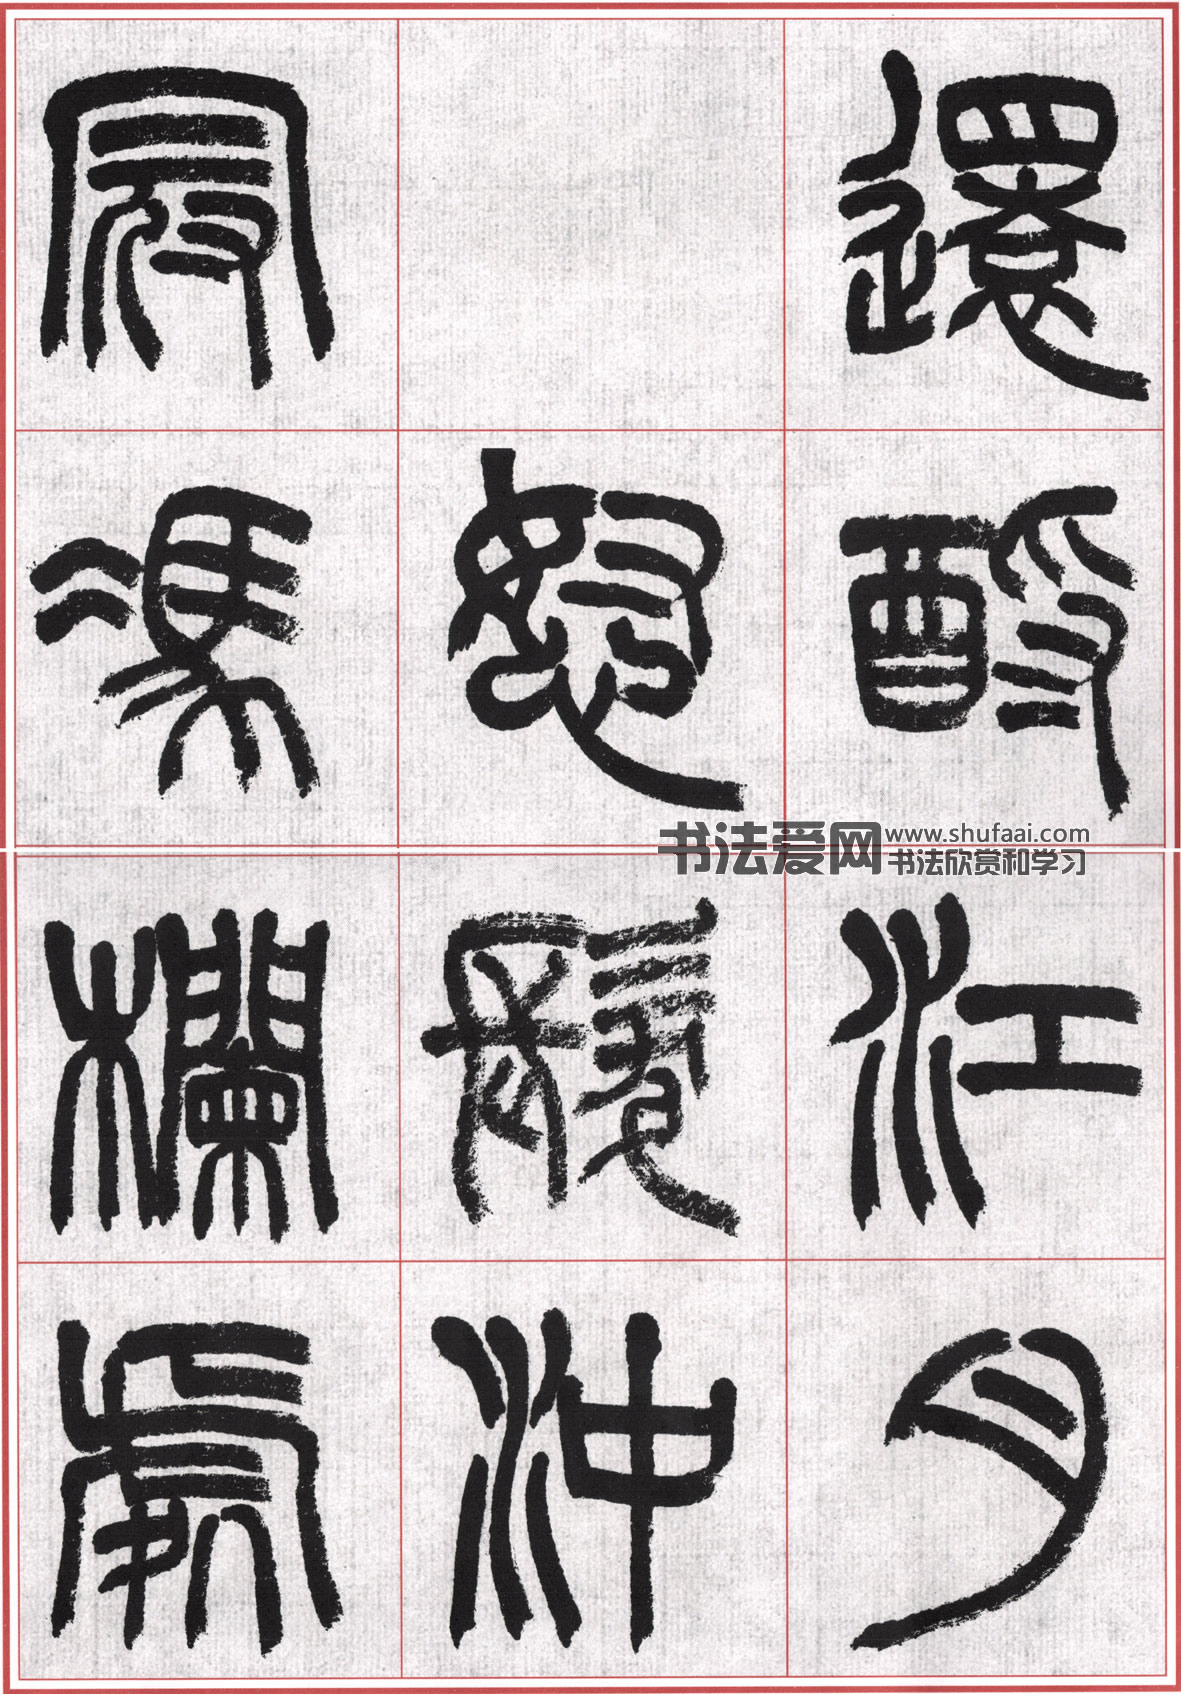 還酹江月
怒髮沖
冠馮欄處
书法爱网 www.shufaai.com
书法欣赏和学习